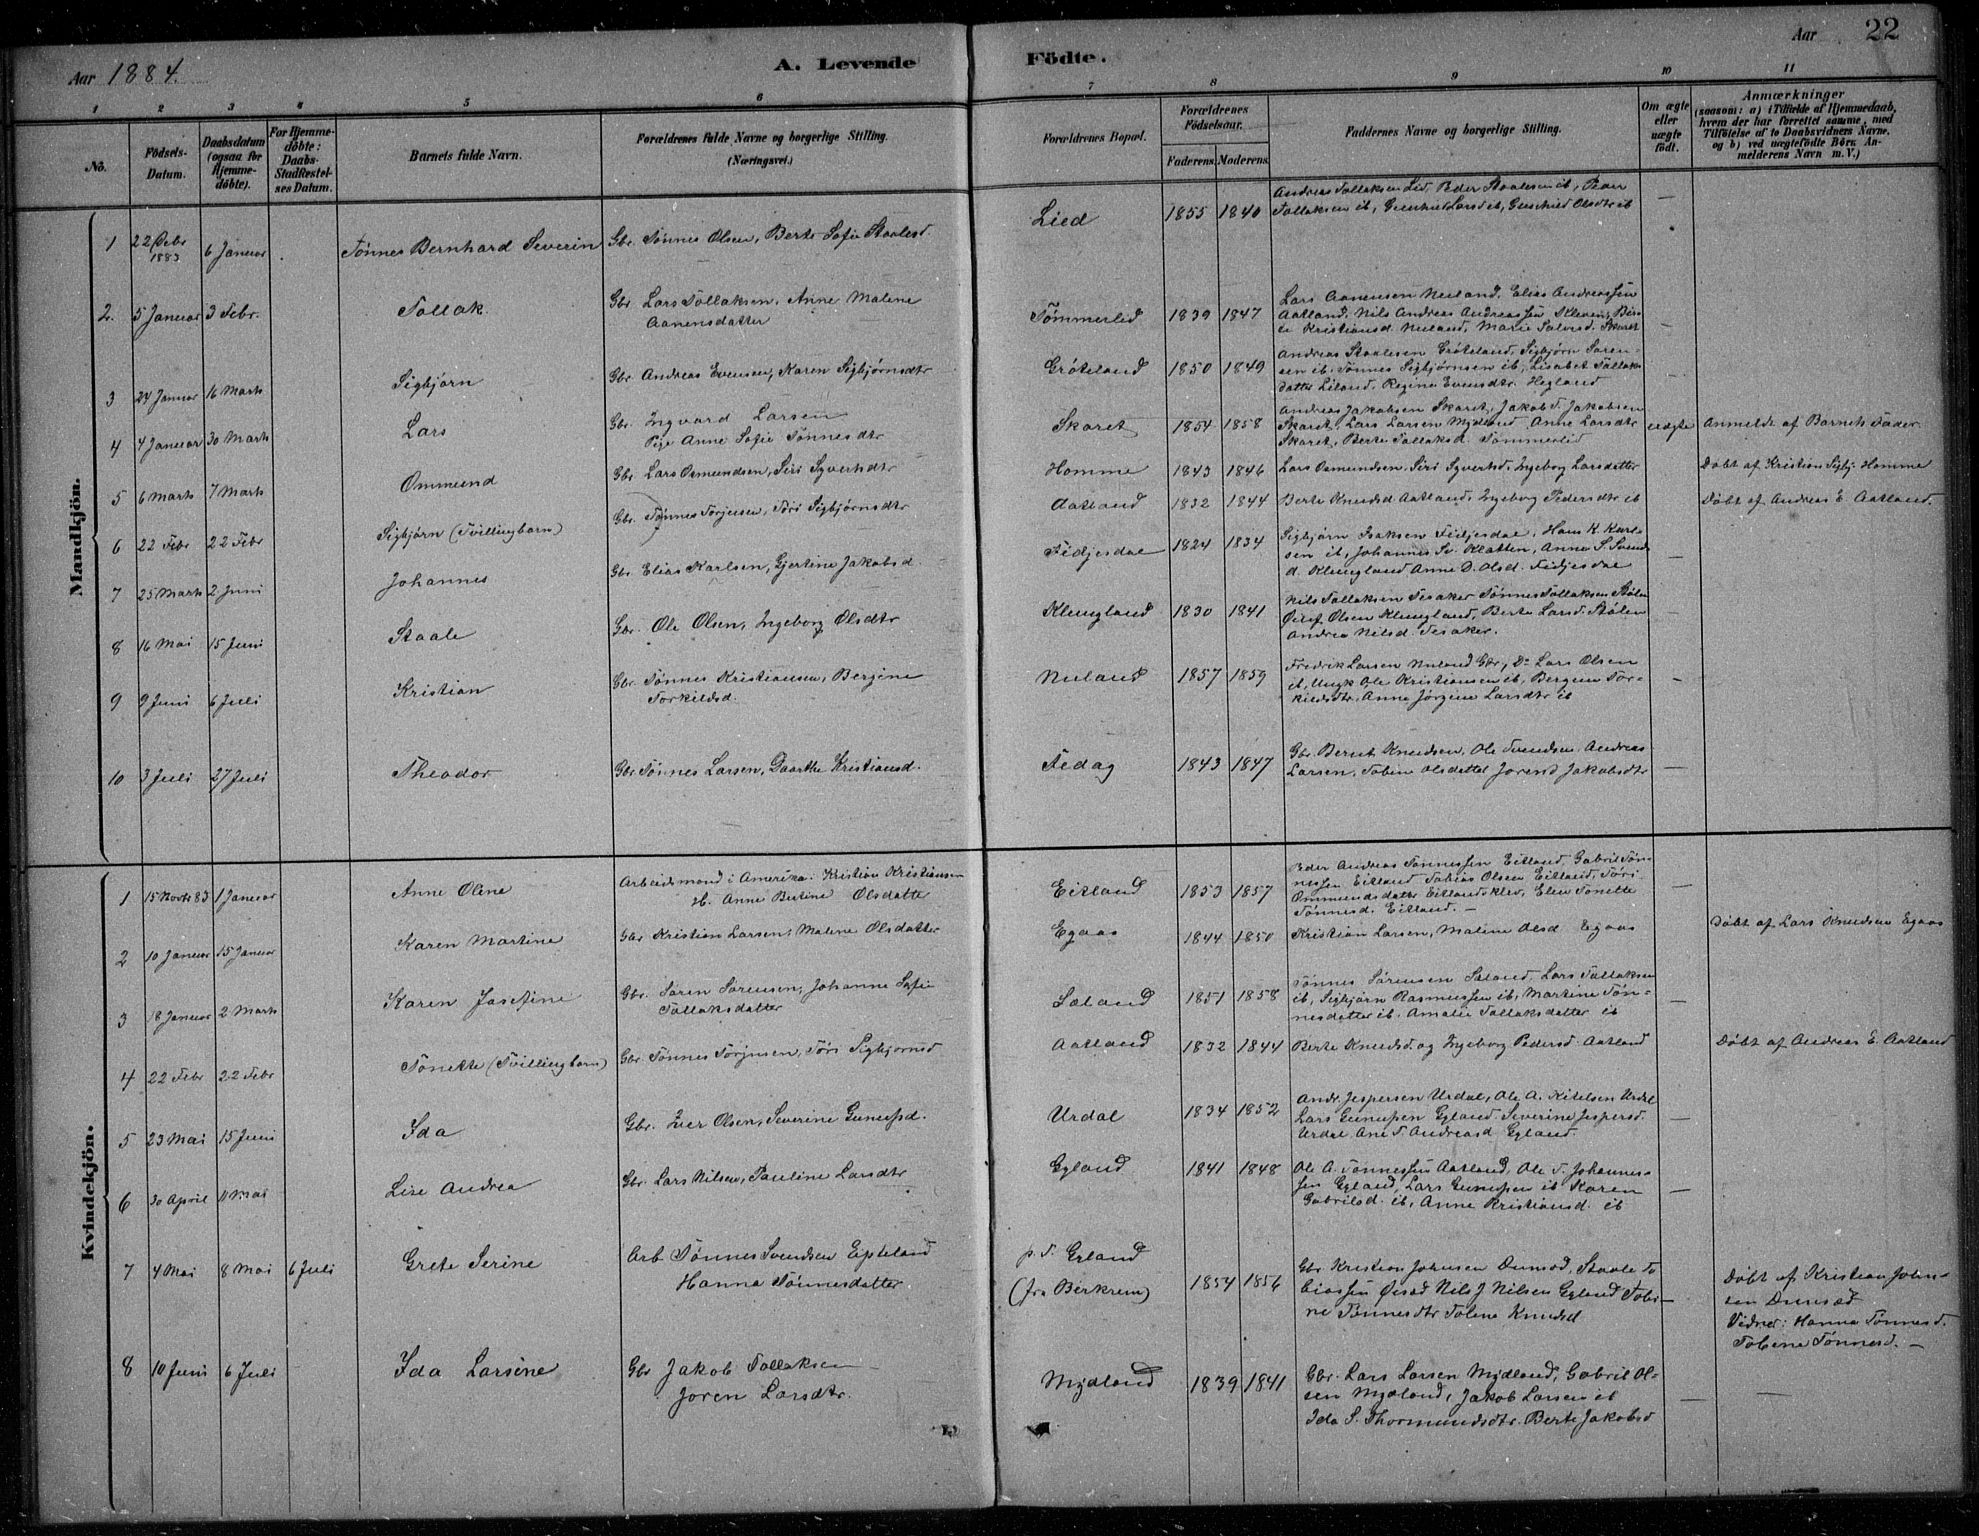 Aar 1884.
A. Levende Fødte.
Aar 22
1 2 3 4 5 6 7 8 9 10 11
No.
Födsels-Datum.
Daabsdatum (ogsaa for Hjemme-döbte).
For Hjemme-döbte: Daabs-Stadfæstel-ses Datum.
Barnets fulde Navn.
Forældrenes fulde Navne og borgerlige Stilling. (Næringsvei.)
Forældrenes Bopæl.
Forældrenes Födselsaar.
Faderens. Moderens.
Faddernes Navne og borgerlige Stilling.
Om ægte eller uægte födt.
Anmærkninger
(saasom: a) i Tilfælde af Hjemmedaab, hvem der har forrettet samme, med Tilföielse af to Daabsvidners Navne, og b) ved uægtefödte Börn Anmelderens Navn m. V.)
Mandkjön.
1 22 Debr 1883 6 Januar Tønnes Bernhard Severin Gbr. Tønnes Olsen, Berte Sofie Staalesd. Lied 1855 1840 Andreas Tollaksen Lid, Peder Staalesen ib, Peder
Tollaksen ib, Gunhild Larsd ib, Gunhild Olsdtr ib —
2. 5 Januar 3 Febr. Tollak Gbr Lars Tollaksen, Anne Malene
Aanensdatter Tømmerlid 1839 1847 Lars Aanensen Nuland, Elias Andreassen
Aatland, Nils Andreas Andreassen Kleven, Ber-
te Kristiansd Nuland, Marie Salvesd. Skaret —
3 24 Januar 16 Marts Sigbjørn Gbr. Andreas Evensen, Karen Sigbjørnsdtr Grøteland 1850 1849 Andreas Staalesen Grøteland, Sigbjørn Søren-
sen ib. Tønnes Sigbjørnsen ib, Lisabet Tollaks
datter Liland, Regine Evensdtr. Hegland —
4 4 Januar 30 Marts Lars Gbr. Ingvard Larsen
Pige Anne Sofie Tønnesdtr Skaret 1854 1858 Andreas Jakobsen Skaret, Jakob T. Jakobsen
Skaret, Lars Larsen Mydland Anne Larsdtr
Skaret, Berte Tollaksd. Tømmerlid uægte Anmeldt af Barnets Fader
5 6 Marts 7 Marts Ommund Gbr. Lars Osmundsen, Siri Syvertsdtr Homme 1843 1846 Lars Osmundsen. Siri Syvertsd, Ingeborg Larsdatter Døbt af Kristian Sigbj. Homme
6 22 Febr 22 Febr Sigbjørn (Tvillingbarn) Gbr. Tønnes Torjusen, Tøri Sigbjørnsdtr Aatland 1832 1844 Berte Knudsd Aatland, Ingeborg Pedersdtr ib Døbt af Andreas E Aatland.
7 25 Marts 2 Juni Johannes Gbr. Elias Karlsen, Gjertine Jakobsd. Fidjesdae 1824 1834 Sigbjørn Isaksen Fidjesdae, Hans K. Karl-
sen ib, Johannes Sv. Klatten, Anna S. Svends
d. Klungland Anne D. Olsd. Fidjesdae —
8 16 Mai 15 Juni Staale Gbr. Ole Olsen, Ingeborg Olsdtr Klungland 1830 1841 Nils Tollaksen Tesaker Tønnes Tollaksen Stølen
Olsen Klungland, Berte Larsd. Stølen
Andrea Nilsd. Tesaker. —
9 9 Juni 6 Juli Kristian Gbr Tønnes Kristiansen, Bergine
Torkildsd. Nuland 1857 1859 Fredrik Larsen Nuland Gbr, Do Lars Olsen
ib, Ungk Ole Kristiansen ib, Bergine Tor-
kildsdtr. Anne Jørgine Larsdtr ib —
10 3 Juli 27 Juli Theodor Gbr Tønnes Larsen, Daarthe Kristiansd. Aedag 1843 1847 Gbr. Bernt Knudsen, Ole Svendsen Andreas
Larsen, Tobine Olsdattel Jorend Jakobsdtr —
Kvindekjön.
1 15 Novbr 83 1 Januar Anne Oline Arbeidsmand i Amerika: Kristian Kristiansen
H. Anne Bertine Olsdatter Eitland 1853 1857 Peder Andreas Tønnessen Eitland, Gabriel Tøn-
nessen Eitland Tobias Olsen Eitland, Tøri
Ommundsdatter Eitlandsklev, Elen Tonette
Tønnesd. Eitland. — —
2 10 Januar 15 Januar Karen Martine Gbr Kristian Larsen, Malene Olsdatter Egaas 1844 1850 Kristian Larsen, Maline Olsd Egaas Døbt af Lars Knudsen Egaas
3 18 Januar 2 Marts Karen Josefine Gbr. Søren Sørensen, Johanne Sofie
Tollaksdatter Sæland 1851 1858 Tønnes Sørensen Sæland, Lars Tollaksen
ib, Sigbjørn Rasmussen ib, Martine Tøn-
nesdatter ib. Amalie Tollaksdatter ib —
4 22 Febr 22 Febr Tonette (Tvillingbarn) Gbr. Tønnes Torjusen, Tøri Sigbjørnsd Aatland 1832 1844 Berte Knudsd. og Ingeborg Pedersd. Aatland Døbt af Andreas E. Aatland
5 23 Mai 15 Juni Ida Gbr. Iver Olsen, Severine Gunufsd. Urdal 1834 1852 Andr. Jespersen Urdal, Ole A. Kitelsen Urdal
Lars Gunufsen Gyland Severine Jespersd.
Urdal Ane T. Andreasd Gyland —
6 20 April 11 Mai Lise Andrea Gbr. Lars Nilsen, Pauline Larsdtr Gyland 1841 1848 Ole A. Tønnessen Aatland, Ole T. Johannes-
sen Gyland, Lars Gunufsen ib Karen
Gabrielsd. ib, Anne Kristiansd. ib —
7 4 Mai 8 Mai 6 Juli Grete Serine Arb Tønnes Svendsen Epteland
Hanna Tønnesdatter. p. t. Gyland
(fra Berkrem) 1854 1856 Gbr Kristian Johnsen Dunsæd, Staale To
biassen Øisæd Nils J Nilsen Gyland Tobi-
ne Tønnesdtr Tolene Knudsd — Døbt af Kristian John-
sen Dunsæd
Vidner: Hanna Tønnesd.
Tobene Tønnesd. —
8 10 Juni 6 Juli Ida Larsine Gbr Jakob Tollaksen —
Joren Larsdtr. Mydland 1839 1841 Gbr. Lars Larsen Mydland, Gabriel Ol-
sen Mydland, Jakob Larsen ib
Ida S. Thormundsdtr. Berte Jakobsd — —